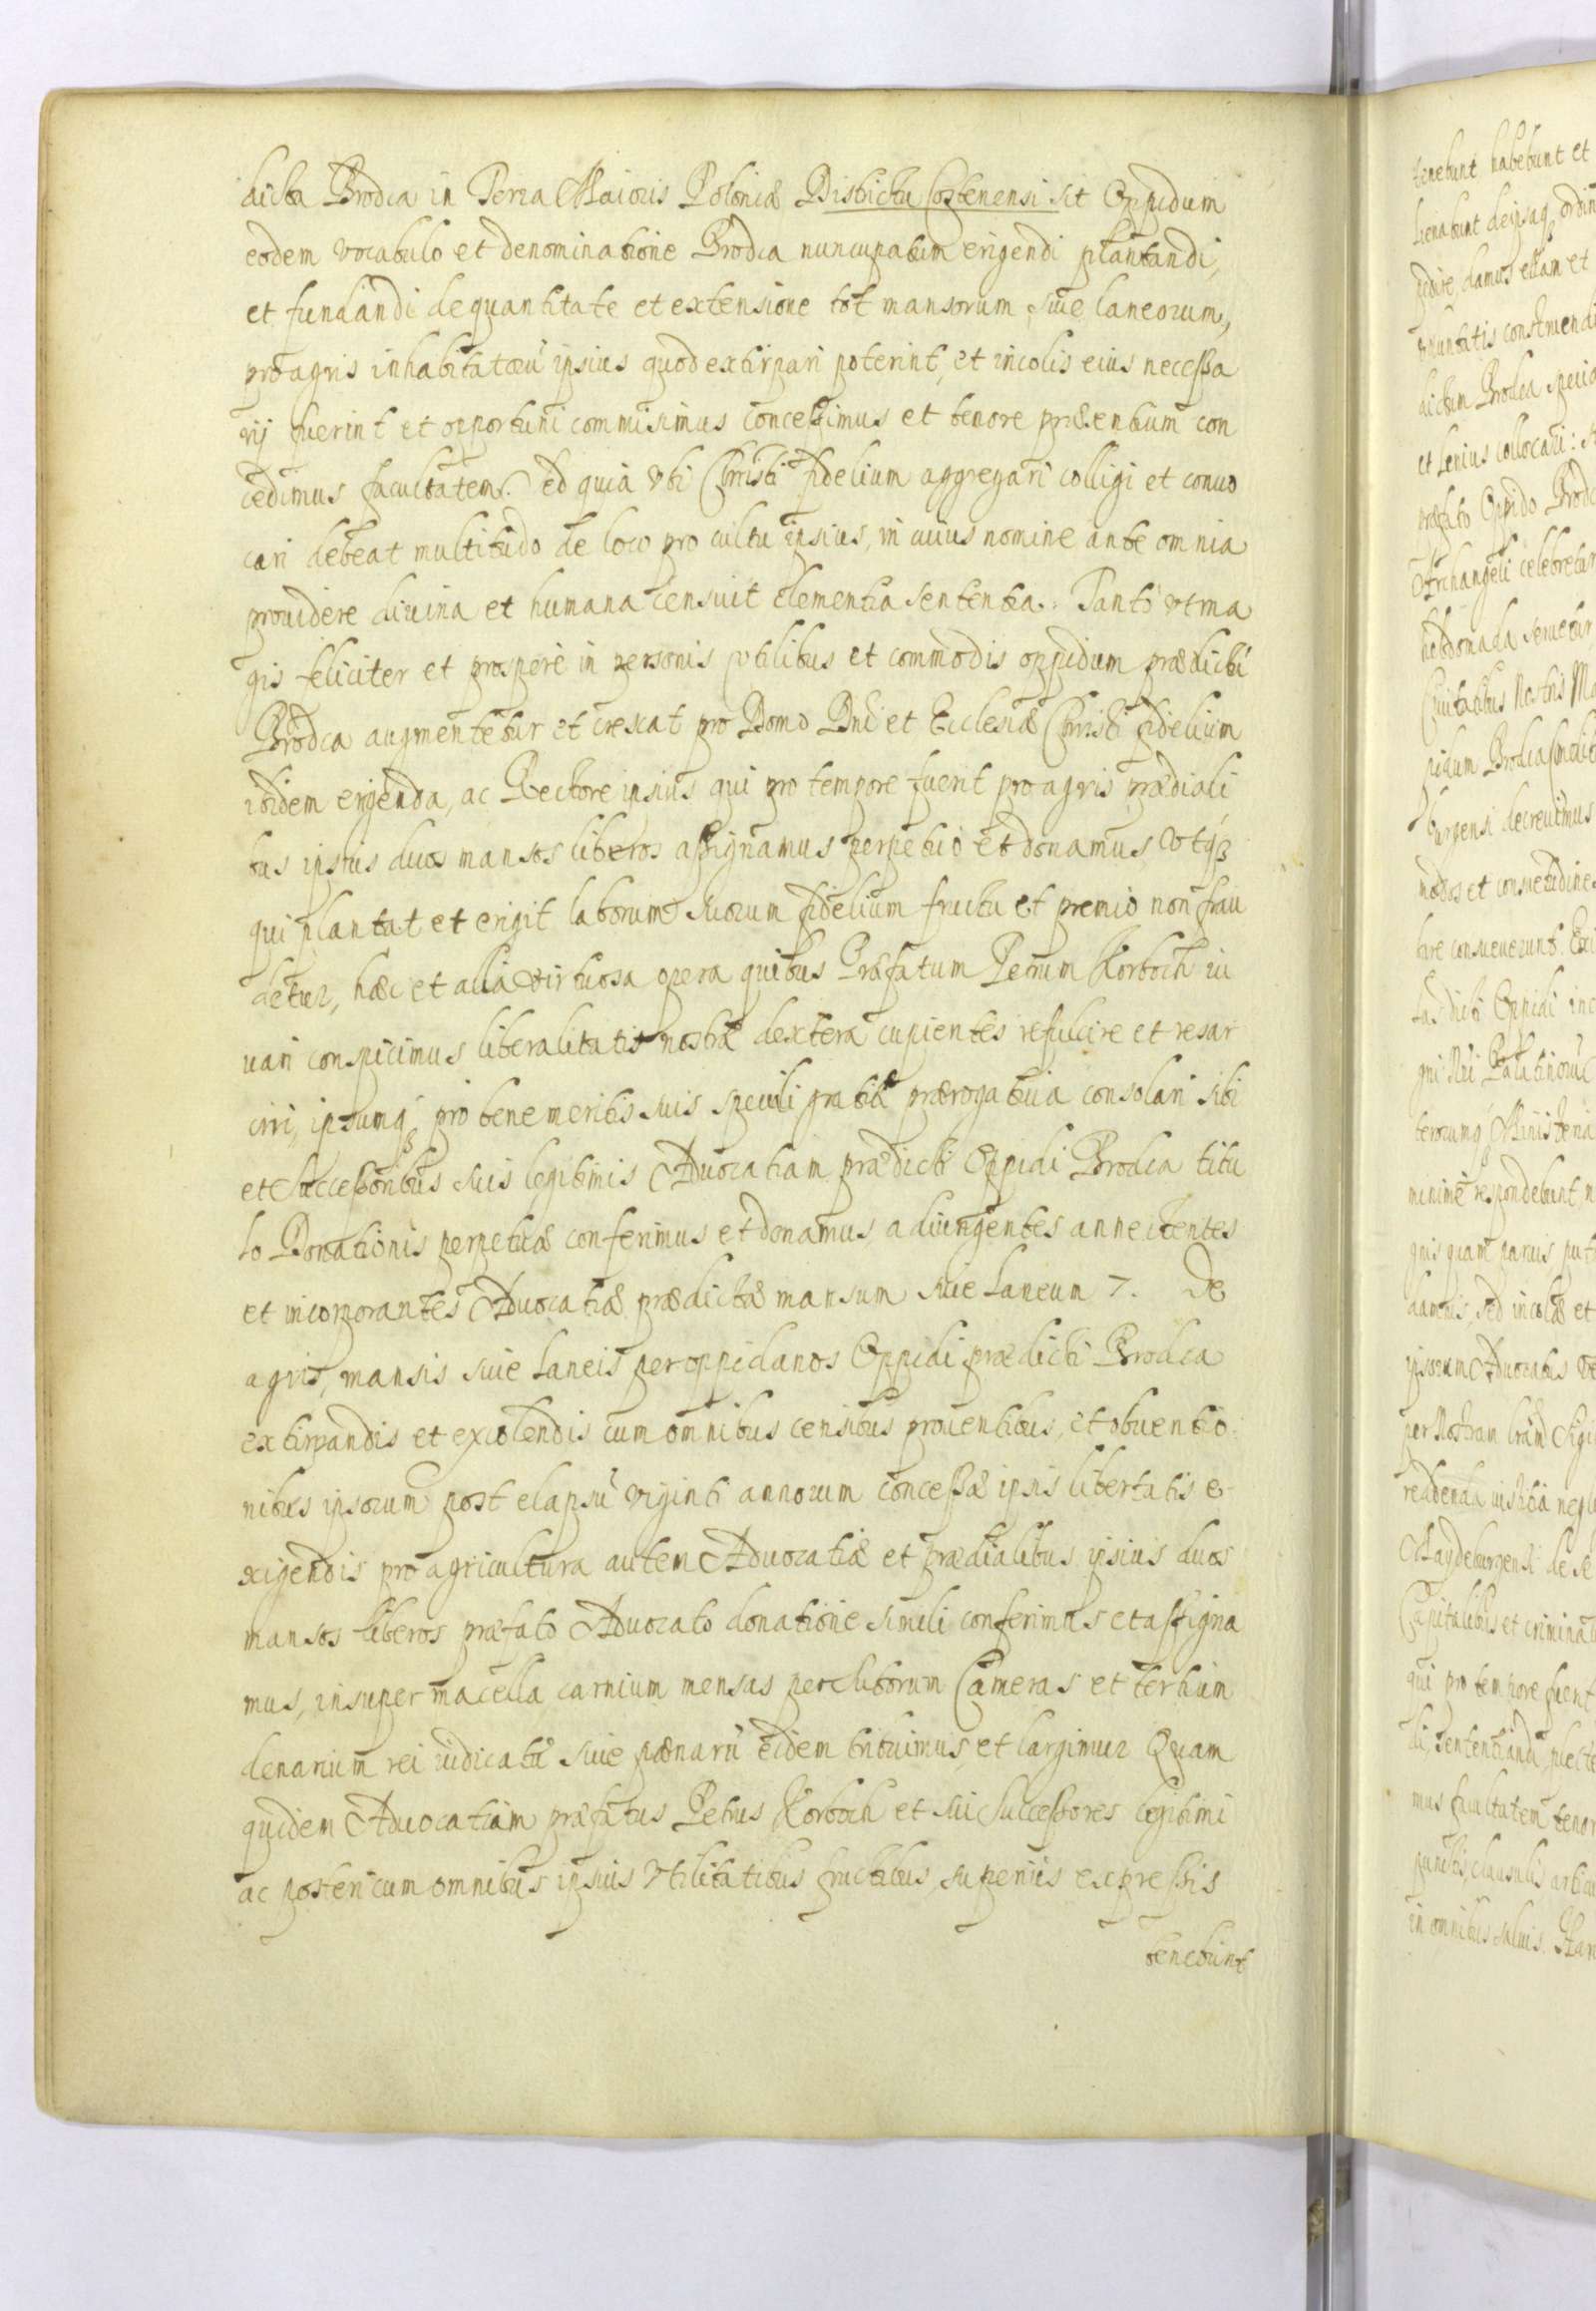 dicta Brodca in Terra Maioris Poloniæ Districtu Costenensi sit Oppidum
eodem vocabulo et denominatione Brodca nuncupatum erigendi plantandi,
et fundandi de quantitate et extensione tot mansorum siue laneorum,
pro agris inhabitatorũ ipsius quod extirpari poterint, et incolis eius necessa
rij fuerint et opportuni commisimus concessimus et tenore præsentium con
cedimus facultatem. Ed quia vbi Christi fidelium aggregari colligi et conuo
cari debeat multitudo de loco pro cultu ipsius, in cuius nomine ante omnia
prouidere diuina et humana censuit clementia sententia. Tanto vt ma
gis feliciter et prospere in personis vtilibus et commodis oppidum prædicti
Brodca augmentetur et crescat pro Domo Dni et Ecclesiæ Christi fidelium
ibidem erigenda, ac Rectore ipsius qui pro tempore fuerit pro agris prædiali
bus ipsius duos mansos liberos assignamus perpetuo et donamus Vtqꝫ
qui plantat et erigit laborum suorum fidelium fructu et premio non frau
detur, hæc et alia virtuosa opera quibus Præfatum Petrum Korboch iu
uari conspicimus liberalitatis nostræ dextera cupientes refulcire et resar
ciri, ipsumqꝫ pro bene meritis suis speciali gratiæ prærogatiua consolari sibi
et successoribus suis legitimis Aduocatiam prædicti Oppidi Brodca titu
lo Donationis perpetuæ conferimus et donamus adiungentes annectentes
et incorporantes Aduocatiæ prædictæ mansum siue Laneum 7. De
agris, mansis siue Laneis per oppidanos Oppidi prædicti Brodca
extirpandis et excolendis cum omnibus censibus prouentibus, et obuentio
nibus ipsorum post elapsũ viginti annorum concessæ ipsis libertatis e-
xigendis pro agricultura autem Aduocatiæ et prædialibus ipsius duos
mansos liberos præfato Aduocato donatione simili conferimus et assigna
mus, insuper macella carnium mensas per Sutorum Cameras et tertium
denarium rei iudicatæ siue pænarũ eidem tribuimus, et largimur Quam
quidem Aduocatiam præfatus Petrus Korboch et sui Successores legitimi
ac posteri cum omnibus ipsius vtilitatibus fructibus, superius expressis
tenebunt
tenebunt habebunt et
dictum Brodca specia
et Lenius collocari:
præfato Oppido Brod
Archangeli celebretur
Ciuitatibus Nostris Ma
pidum Brodca
burgensi decreuimus
modos et consuetudines
tare consueuerunt.
tas dicti Oppidi inc
gni Nri Palatinorum
minime respondebunt
gnis quam paruis
damnis, sed incolæ et
ipsorum Aduocatus
reddenda iustitia negl
Maydeburgensi de se
Capitalibus et crimina
qui pro tempore fuerit
mus facultatem tenor
punctis, clausulis artic
in omnibus saluis. Har